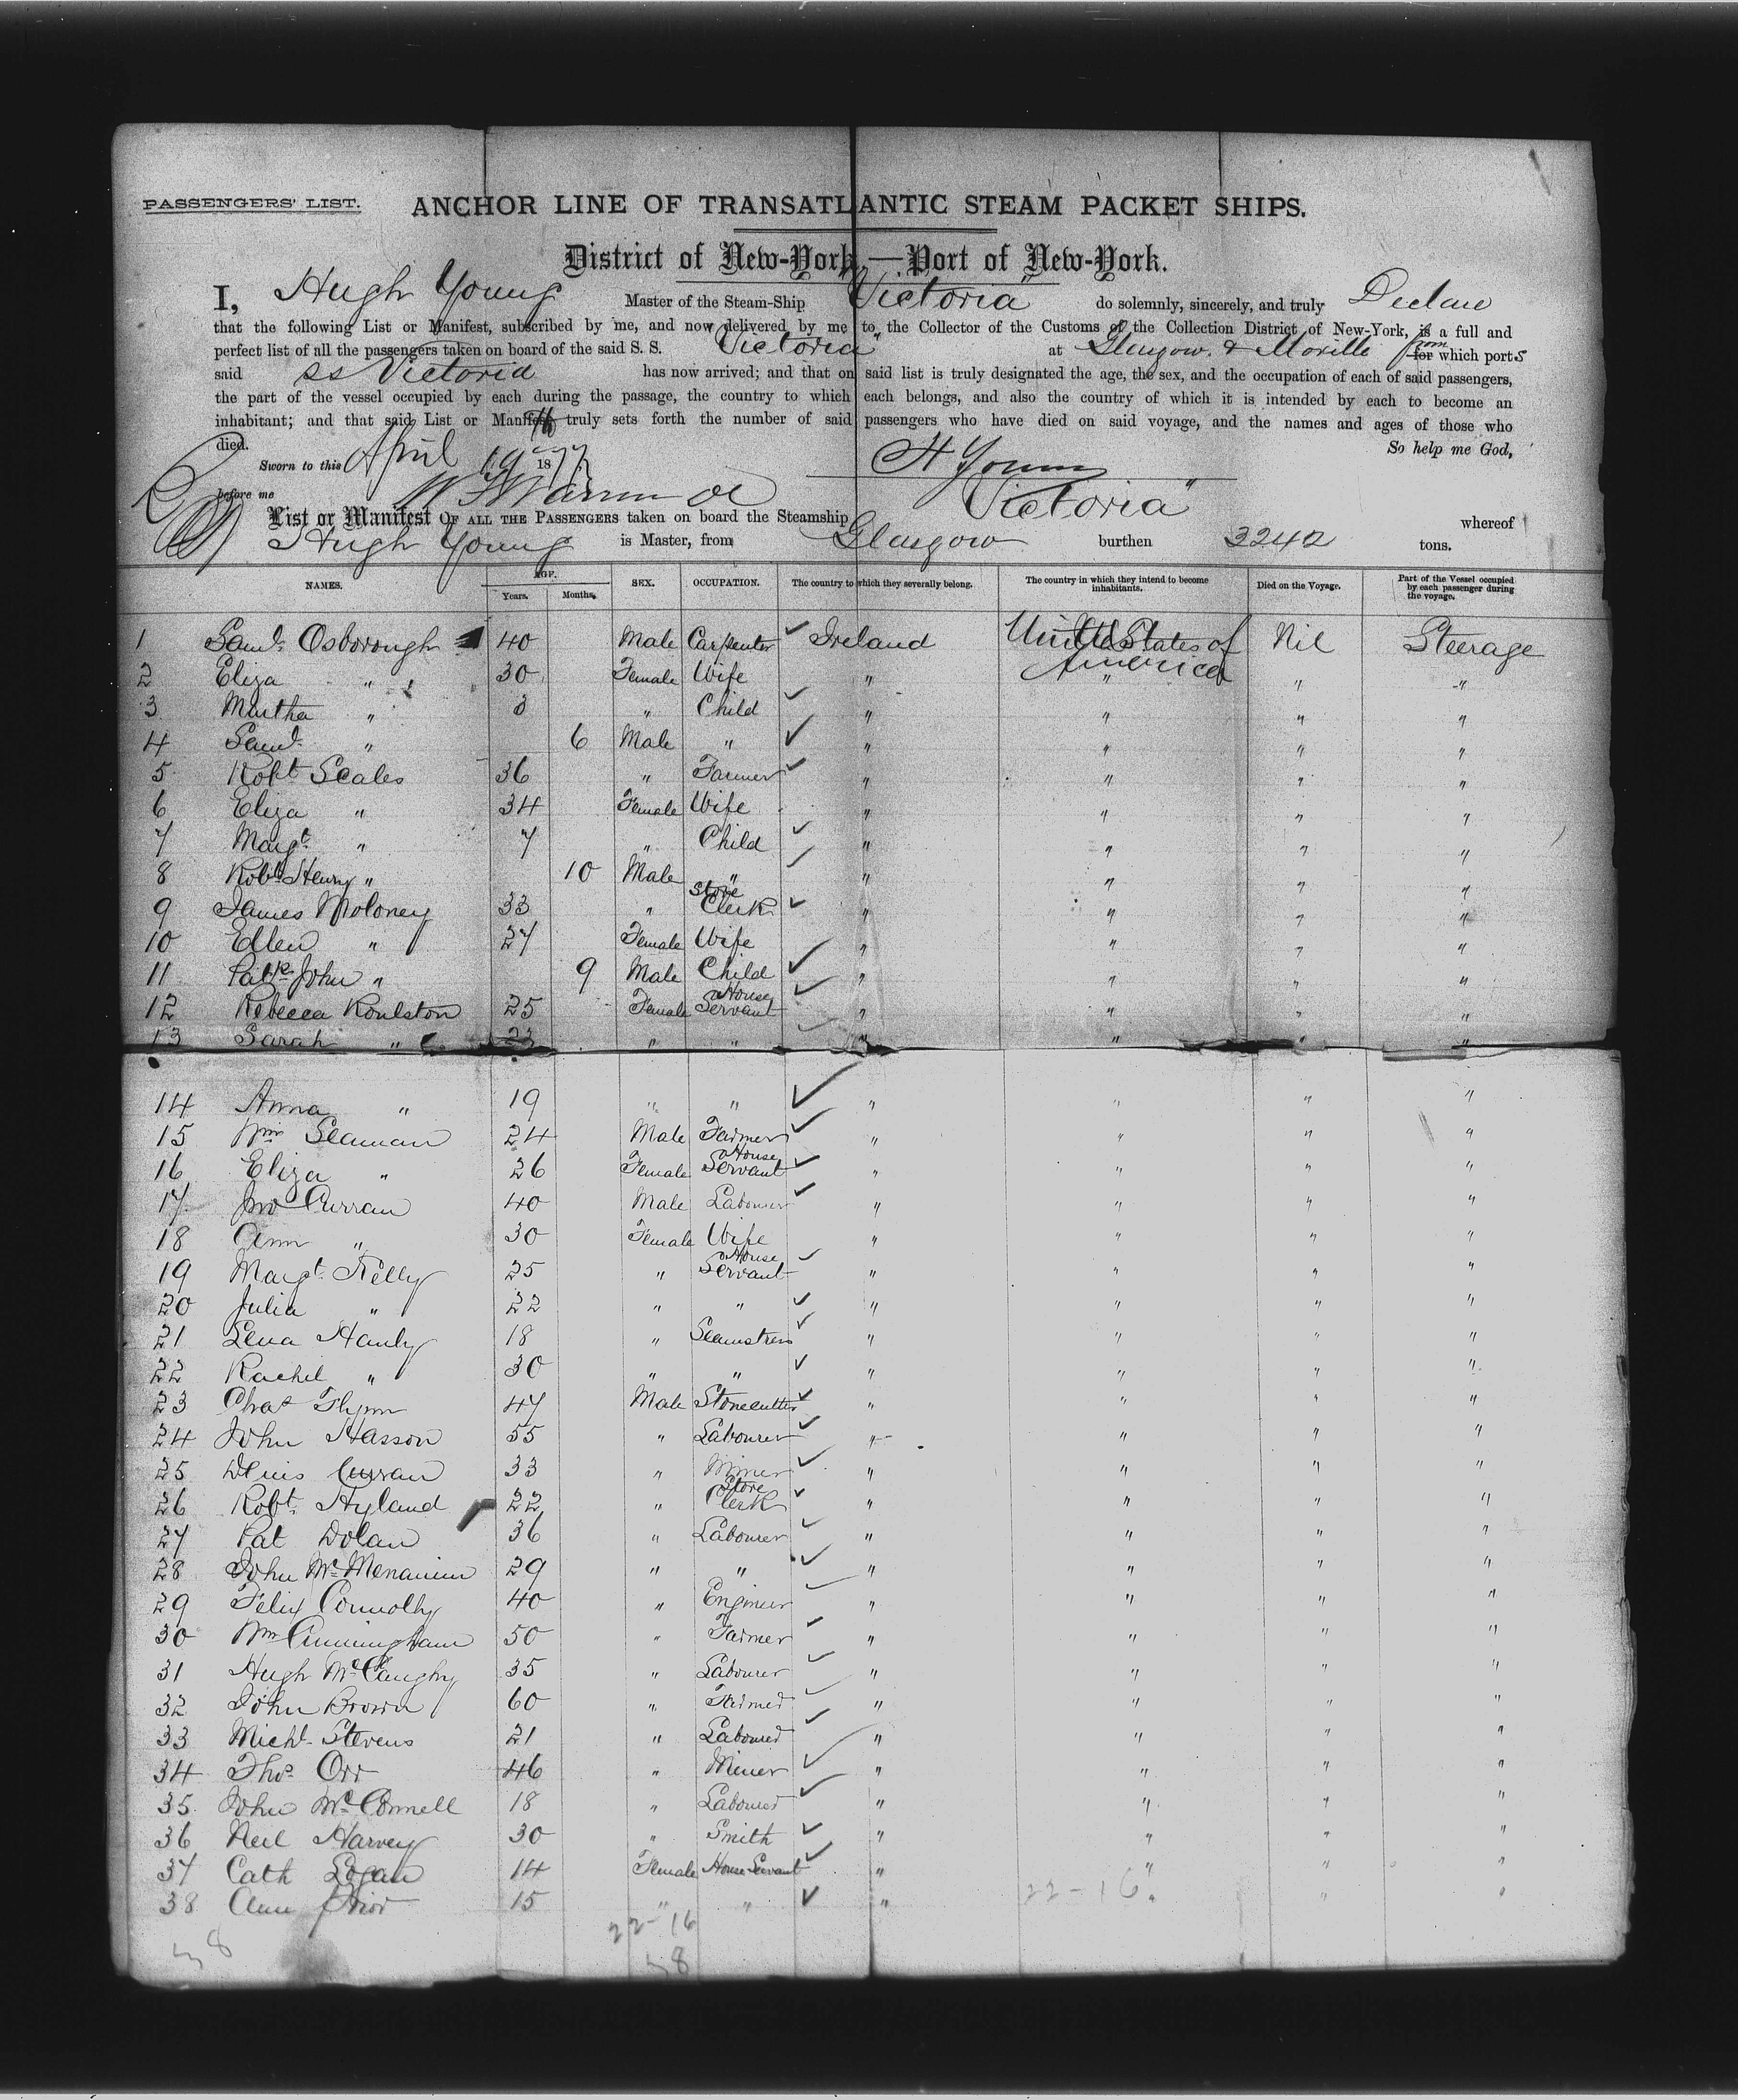 PASSENGERS' LIST.
ANCHOR LINE OF TRANSATLANTIC STEAM PACKET SHIPS.
District of New-York,—Port of New-York.
I, Hugh Young Master of the Steam-Ship "Victoria" do solemnly, sincerely, and truly Declare
that the following List or Manifest, subscribed by me, and now delivered by me to the Collector of the Customs of the Collection District of New-York, is a full and
perfect list of all the passengers taken on board of the said S. S. Victoria" at Glasgow & Moville from for which ports
said SS Victoria has now arrived; and that on said list is truly designated the age, the sex, and the occupation of each of said passengers,
the part of the vessel occupied by each during the passage, the country to which each belongs, and also the country of which it is intended by each to become an
inhabitant; and that said List or Manifest truly sets forth the number of said passengers who have died on said voyage, and the names and ages of those who
died. So help me God,
Sworn to this April 19 1877 H Young
before me
List or Manifest OF ALL THE PASSENGERS taken on board the Steamship Victoria" whereof
Hugh Young is Master, from Glasgow burthen 3242 tons.
NAMES. AGE. Years. Months. SEX. OCCUPATION. The country to which they severally belong. The country in which they intend to become inhabitants. Died on the Voyage. Part of the Vessel occupied by each passenger during the voyage.
1 Saml. Osborough 40 Male Carpenter Ireland United States of America Nil Steerage
2 Eliza " 30 Female Wife " " " "
3 Martha " 3 " Child " " " "
4 Saml. " 6 Male " " " " "
5 Robt Scales 36 " Farmer " " " "
6 Eliza " 34 Female Wife " " " "
7 Margt. " 7 " Child " " " "
8 Robt. Henry " 10 Male " " " " "
9 James Moloney 33 " Store Clerk " " " "
10 Ellen " 27 Female Wife " " " "
11 Patk. John " 9 Male Child " " " "
12 Rebecca Roulston 25 Female House Servant " " " "
13 Sarah " 23 " " " " " "
14 Anna " 19 " " " " " "
15 Wm Seaman 24 Male Farmer " " " "
16 Eliza " 26 Female House Servant " " " "
17 Jno Curran 40 Male Labourer " " " "
18 Ann " 30 Female Wife " " " "
19 Margt. Kelly 25 " House Servant " " " "
20 Julia " 22 " " " " " "
21 Lena Hanly 18 " Seamstress " " " "
22 Rachel " 30 " " " " " "
23 Chas Flynn 47 Male Stonecutter " " " "
24 John Hasson 55 " Labourer " " " "
25 Denis Curran 33 " Miner " " " "
26 Robt. Hyland 22 " Store Clerk " " " "
27 Pat Dolan 36 " Labourer " " " "
28 John McMenamin 29 " " " " " "
29 Felix Connolly 40 " Engineer " " " "
30 Wm Cunningham 50 " Farmer " " " "
31 Hugh McCaughy 35 " Labourer " " " "
32 John Brown 60 " Farmer " " " "
33 Michl. Stevens 21 " Labourer " " " "
34 Thos. Orr 46 " Miner " " " "
35 John McConnell 18 " Labourer " " " "
36 Neil Harvey 30 " Smith " " " "
37 Cath Logan 14 Female House Servant " " " "
38 Ann Prior 15 " " " " " "
22-16.
22-16
38
38